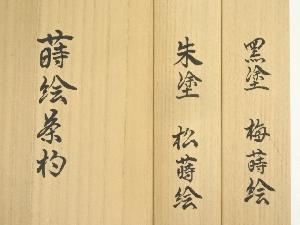 黒塗 梅蒔絵
朱塗 松蒔絵
蒔絵茶杓